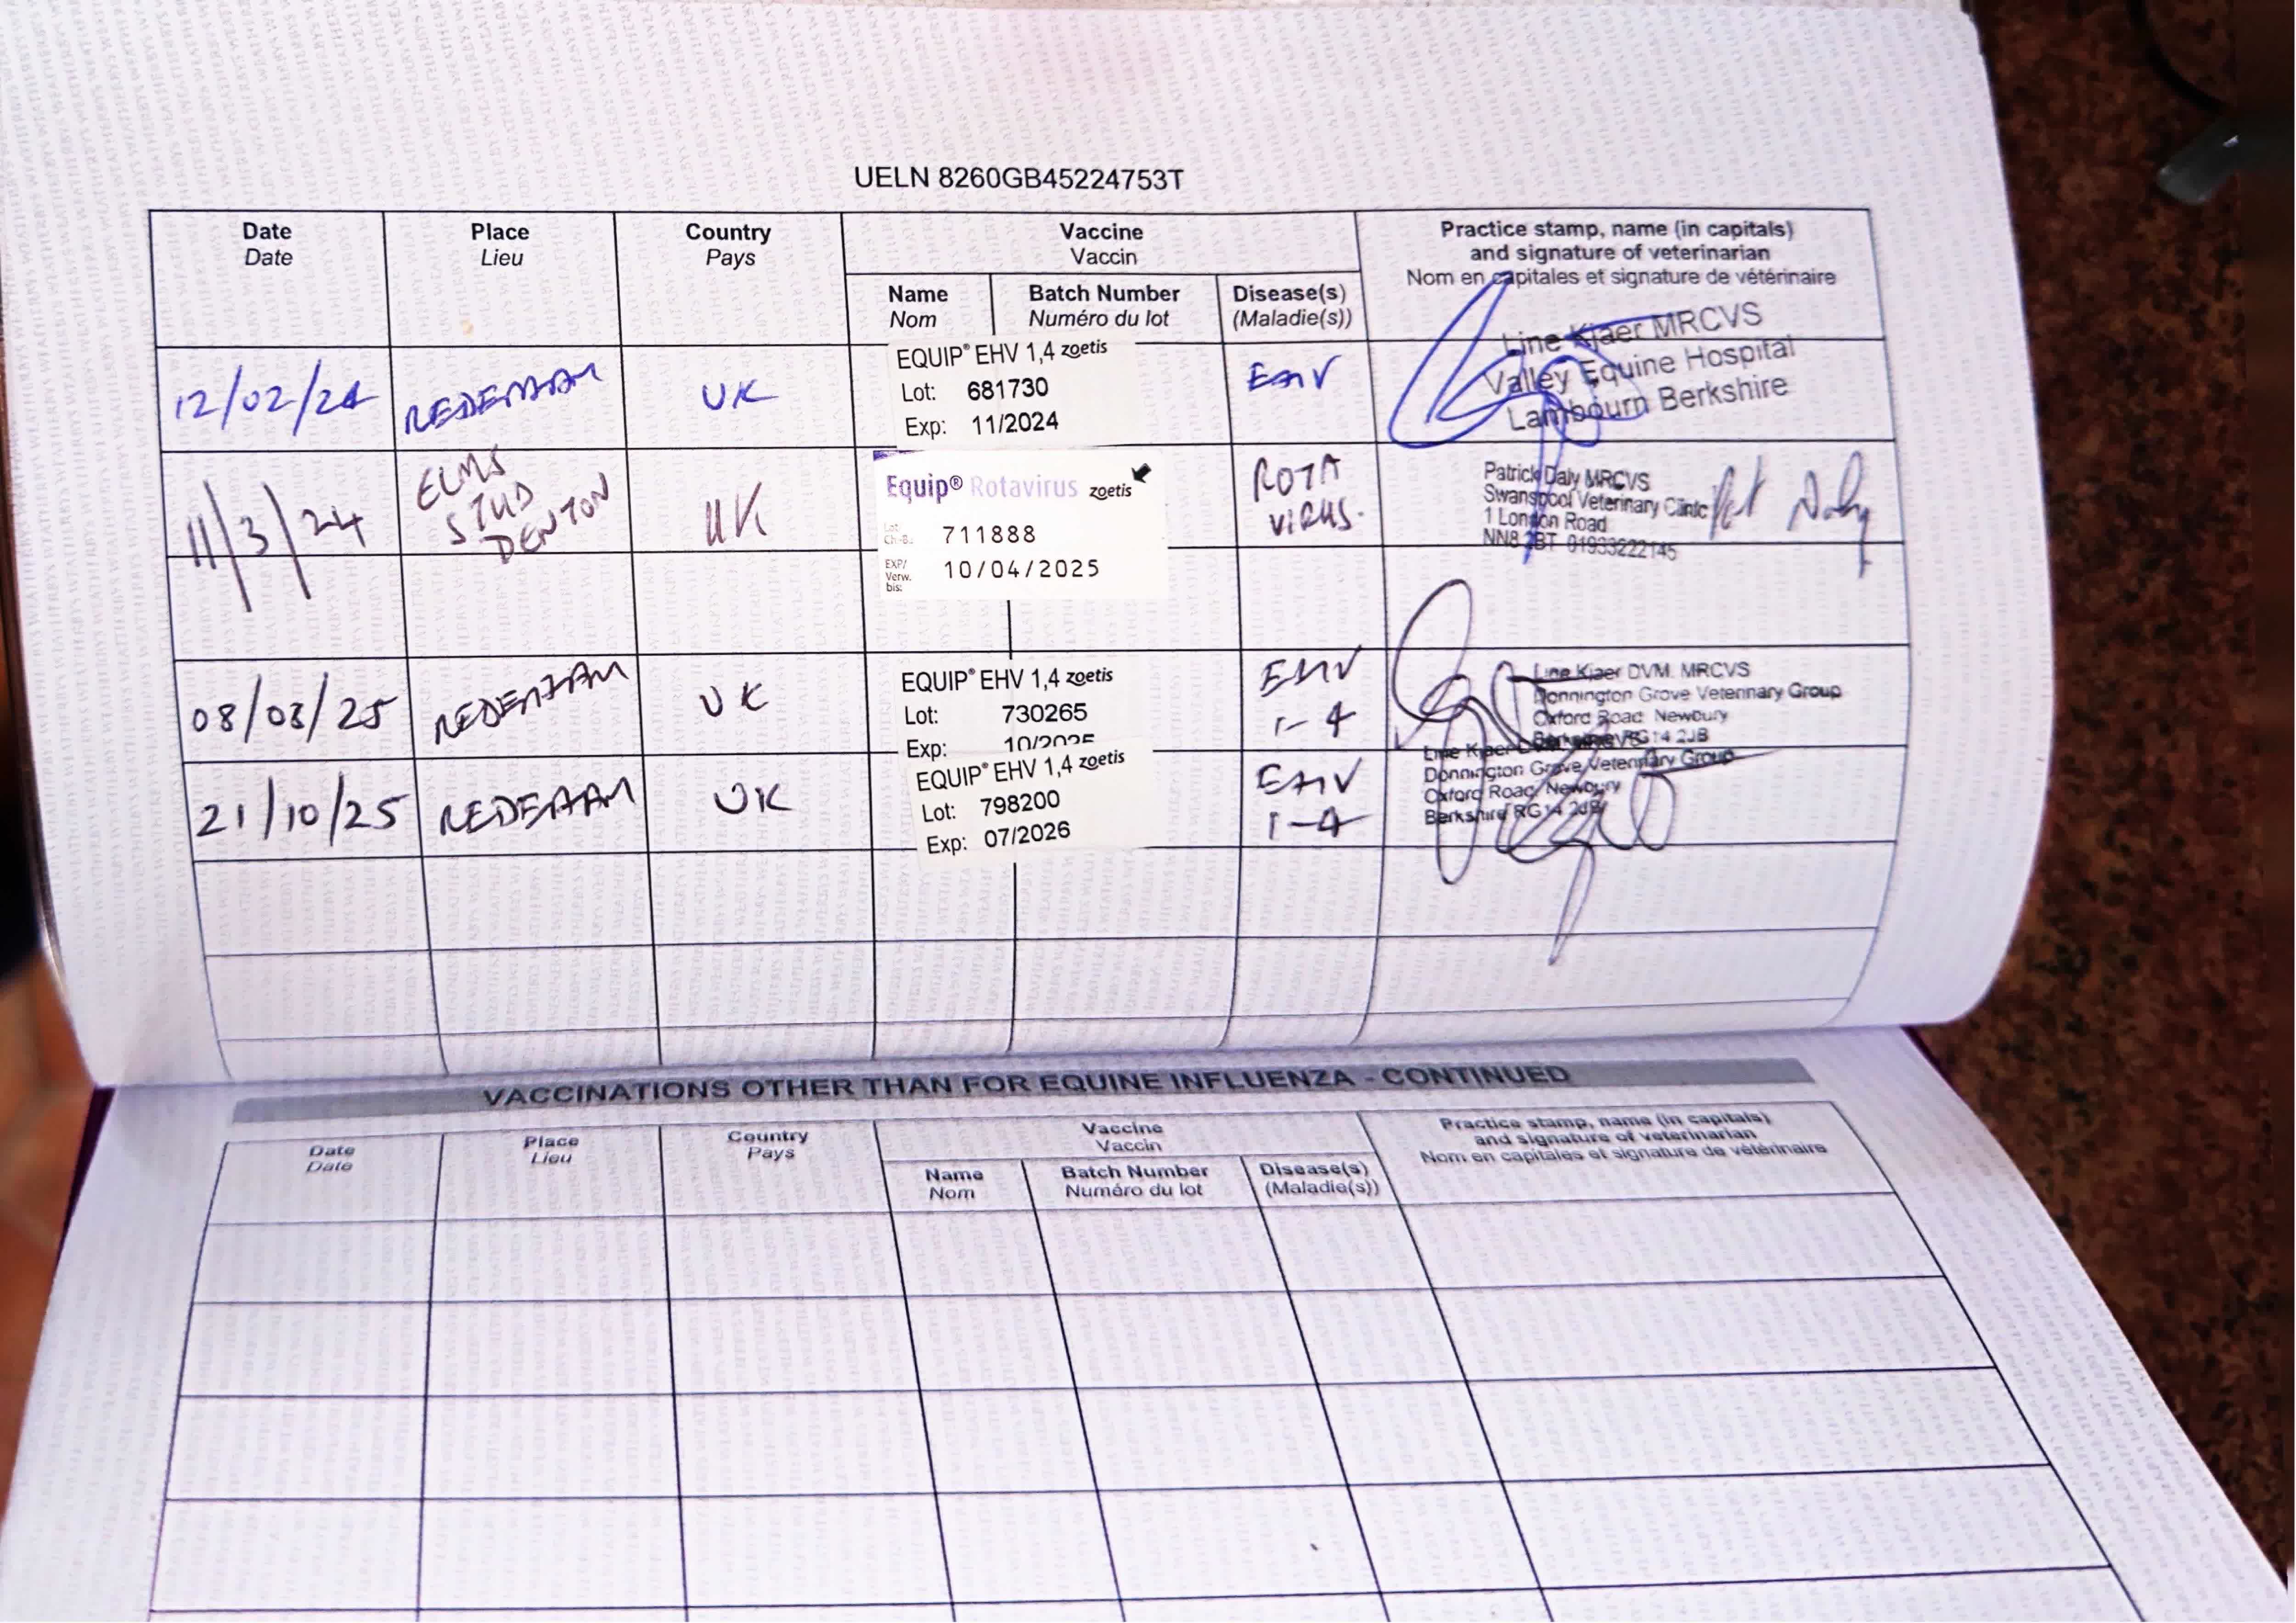 UELN 8260GB45224753T
Date
Date
Place
Lieu
Country
Pays
Vaccine
Vaccin
Name
Nom
Batch Number
Numéro du lot
Disease(s)
(Maladie(s))
Practice stamp, name (in capitals)
and signature of veterinarian
Nom en capitales et signature de vétérinaire
12/02/24
UK
EQUIP® EHV 1,4 zoetis
Lot: 681730
Exp: 11/2024
EHV
Line Kjaer MRCVS
Valley Equine Hospital
Lambourn Berkshire
11/3/24
ELMS
STUD
DENTON
UK
Equip® Rotavirus zoetis
Lot
Ch.-B.: 711888
EXP/
Verw.
bis: 10/04/2025
ROTA
VIRUS.
Patrick Daly MRCVS
Swanspool Veterinary Clinic
1 London Road
NN8 2BT 01933222145
Pat Daly
08/03/25
UK
EQUIP® EHV 1,4 zoetis
Lot: 730265
Exp: 10/2025
EHV
1-4
Line Kjaer DVM. MRCVS
Donnington Grove Veterinary Group
Oxford Road Newbury
Berkshire RG14 2JB
21/10/25
UK
EQUIP® EHV 1,4 zoetis
Lot: 798200
Exp: 07/2026
EHV
1-4
Line Kjaer
Donnington Grove Veterinary Group
Oxford Road, Newbury
Berkshire RG14 2JB
VACCINATIONS OTHER THAN FOR EQUINE INFLUENZA - CONTINUED
Date
Date
Place
Lieu
Country
Pays
Vaccine
Vaccin
Name
Nom
Batch Number
Numéro du lot
Disease(s)
(Maladie(s))
Practice stamp, name (in capitals)
and signature of veterinarian
Nom en capitales et signature de vétérinaire